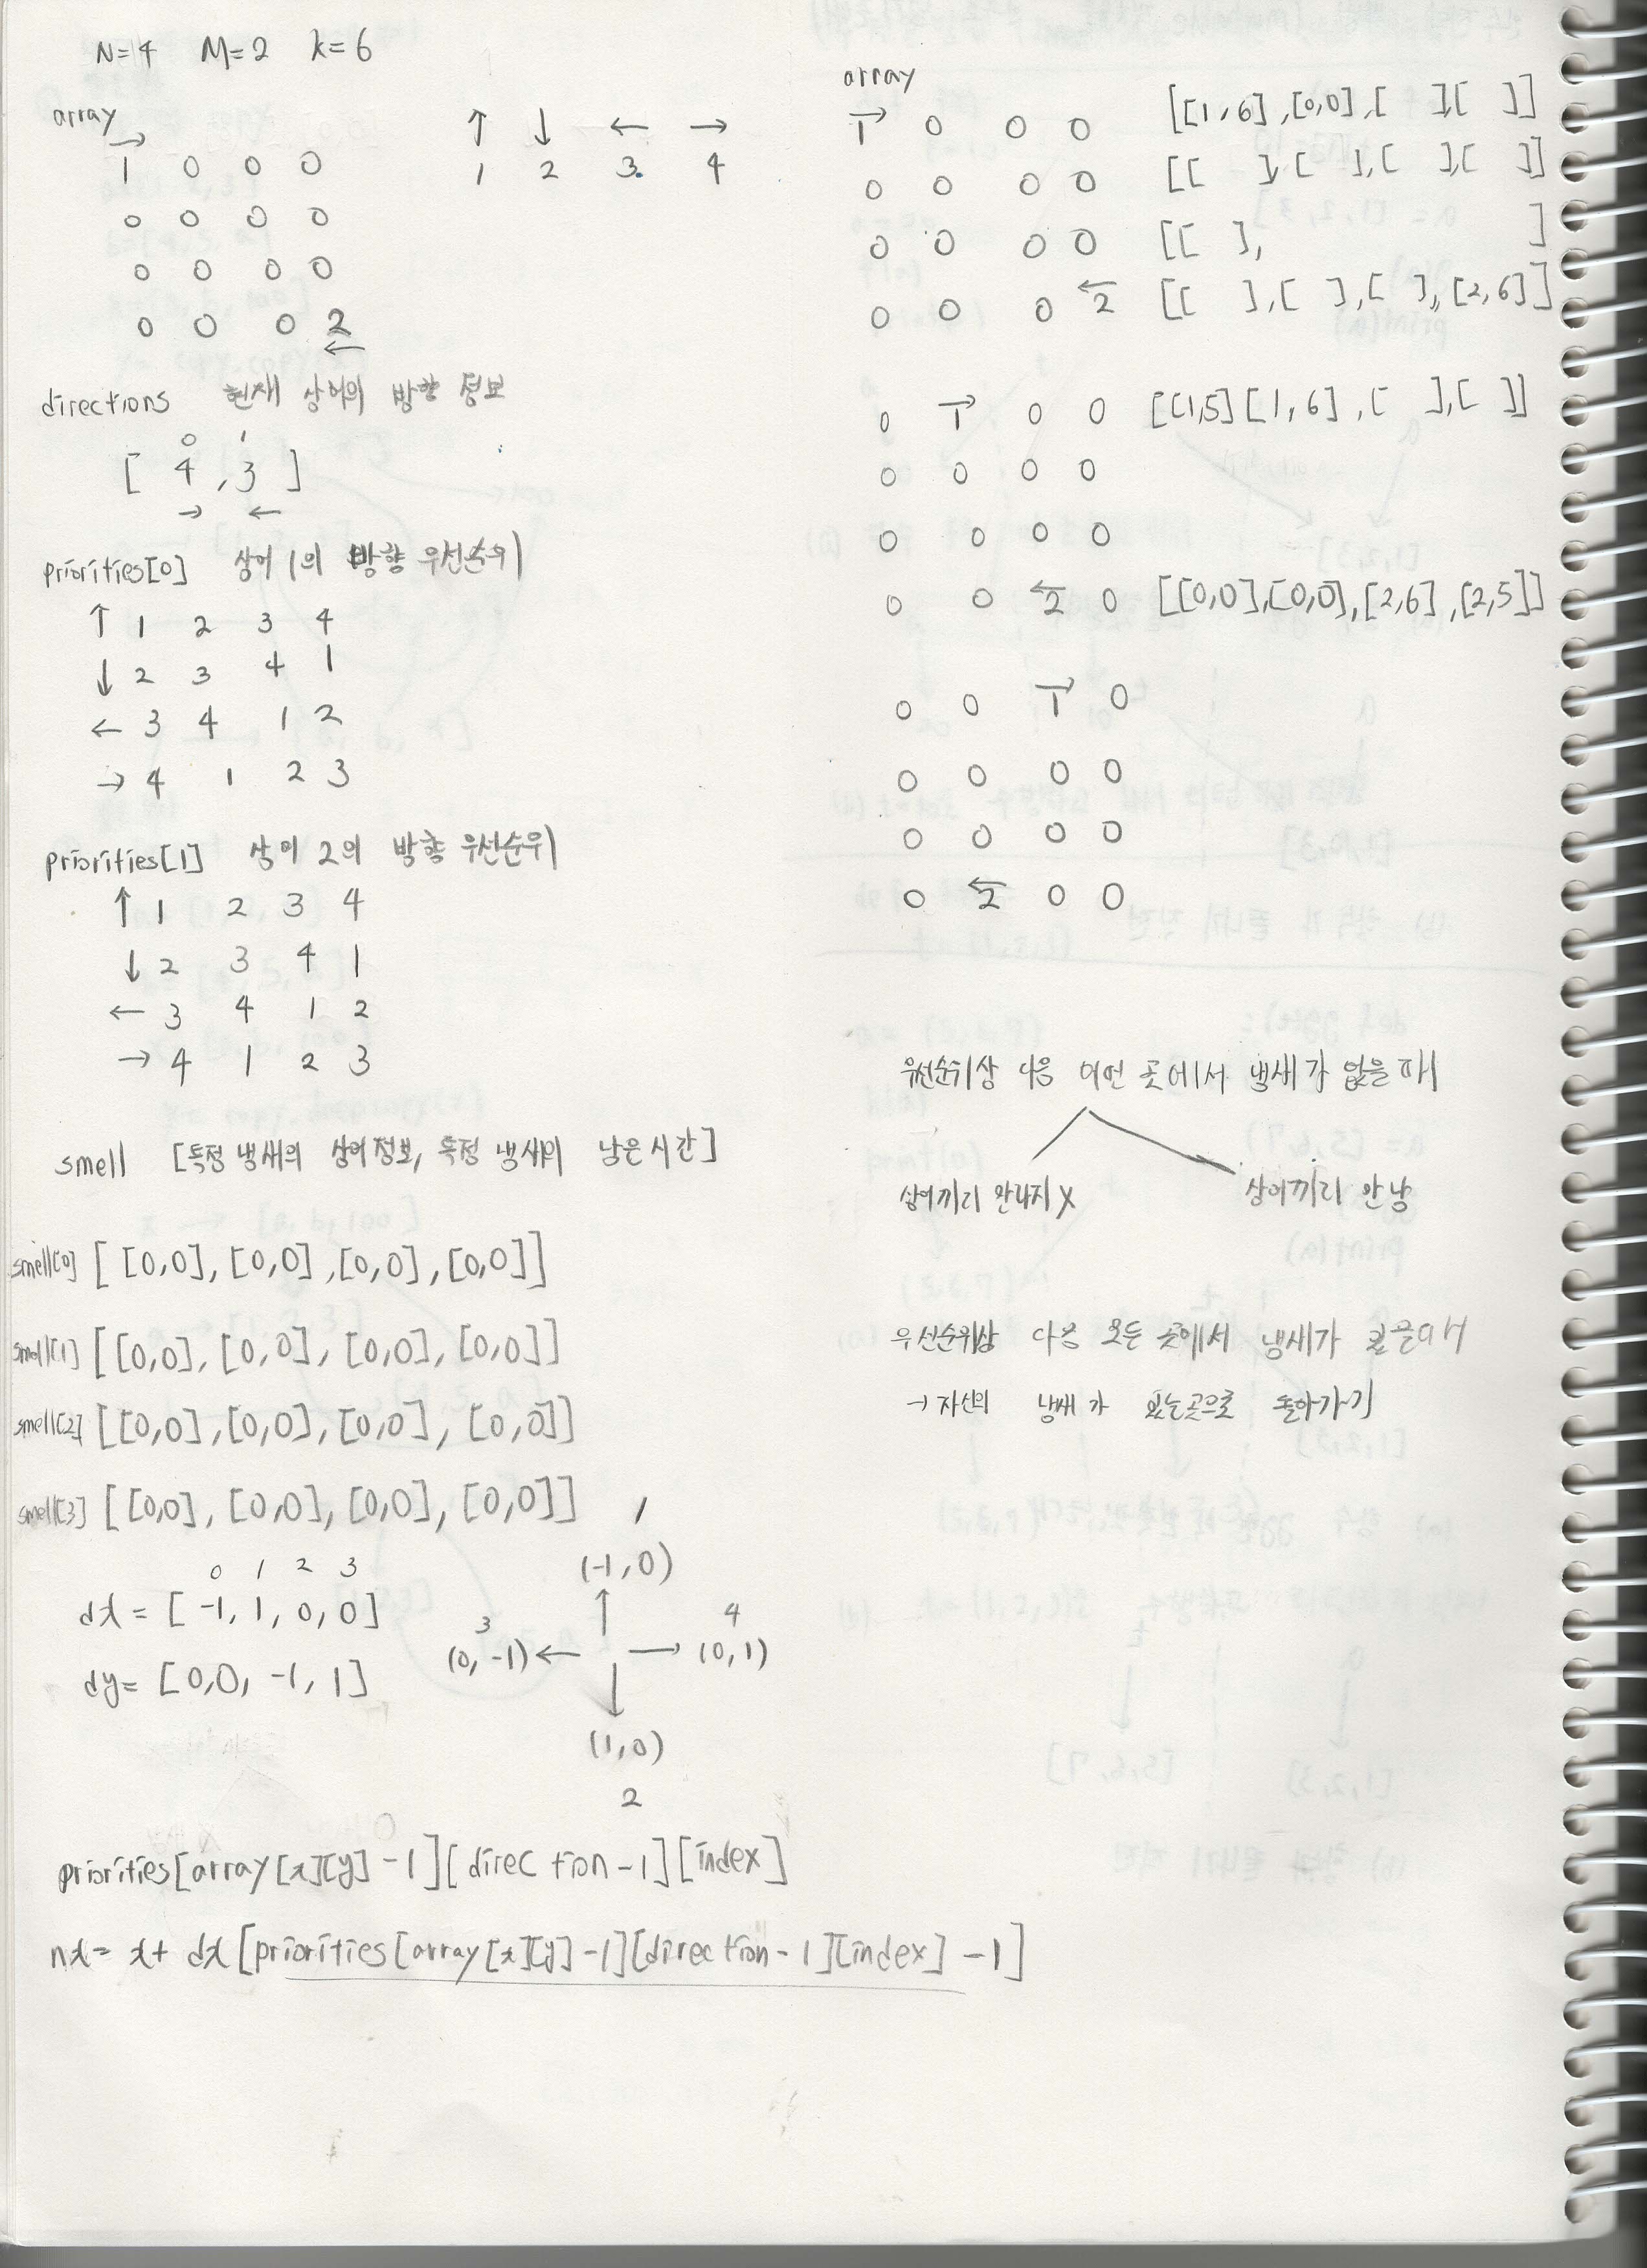 N=4 M=2 k=6
array
→
1 0 0 0
0 0 0 0
0 0 0 0
0 0 0 2
←
↑ ↓ ← →
1 2 3 4
directions 현재 상어의 방향 정보
0 1
[ 4 , 3 ]
→ ←
priorities[0] 상어 1의 방향 우선순위
↑ 1 2 3 4
↓ 2 3 4 1
← 3 4 1 2
→ 4 1 2 3
priorities[1] 상어 2의 방향 우선순위
↑ 1 2 3 4
↓ 2 3 4 1
← 3 4 1 2
→ 4 1 2 3
smell [특정 냄새의 상어정보, 특정 냄새의 남은시간]
smell[0] [ [0,0], [0,0], [0,0], [0,0]]
smell[1] [[0,0], [0,0], [0,0], [0,0]]
smell[2] [[0,0], [0,0], [0,0], [0,0]]
smell[3] [[0,0], [0,0], [0,0], [0,0]]
0 1 2 3
dx = [ -1, 1, 0, 0]
dy= [0,0, -1, 1]
1
(-1, 0)
↑
3 4
(0, -1) ← → (0, 1)
↓
(1, 0)
2
priorities[array[x][y] -1][direction-1][index]
nx= x+ dx[priorities[array[x][y] -1][direction-1][index] -1]
array
→
1 0 0 0 [[1,6],[0,0],[ ],[ ]]
0 0 0 0 [[ ],[ ],[ ],[ ]]
0 0 0 0 [[ ], ]
←
0 0 0 2 [[ ],[ ],[ ],,[2,6]]
→
0 1 0 0 [[1,5][1,6],[ ],[ ]]
0 0 0 0
0 0 0 0
←
0 0 2 0 [[0,0],[0,0],[2,6],[2,5]]
→
0 0 1 0
0 0 0 0
0 0 0 0
←
0 2 0 0
우선순위상 다음 어떤 곳에서 냄새가 없을 때
상어끼리 만나지 X 상어끼리 만남
우선순위상 다음 모든 곳에서 냄새가
→ 자신의 냄새가 있는곳으로 돌아가기